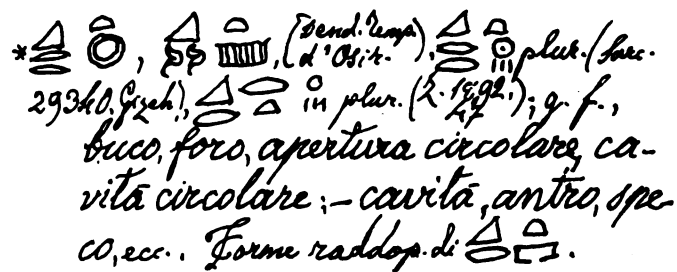 * , , (Dend. Temp. d'Osir.), plur. (Sarc.
29340. Gizeh), plur. (Z. 1892. 47); g. f.,
buco, foro, apertura circolare, ca-
vità circolare; – cavità, antro, spe-
co, ecc.. Forme raddop. di .